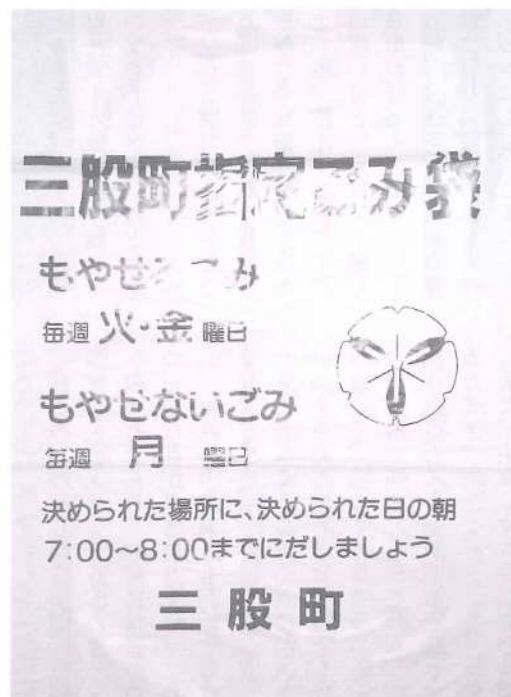 三股町指定ごみ袋
もやせるごみ
毎週 火・金 曜日
もやせないごみ
毎週 月 曜日
決められた場所に、決められた日の朝
7:00～8:00までにだしましょう
三股町